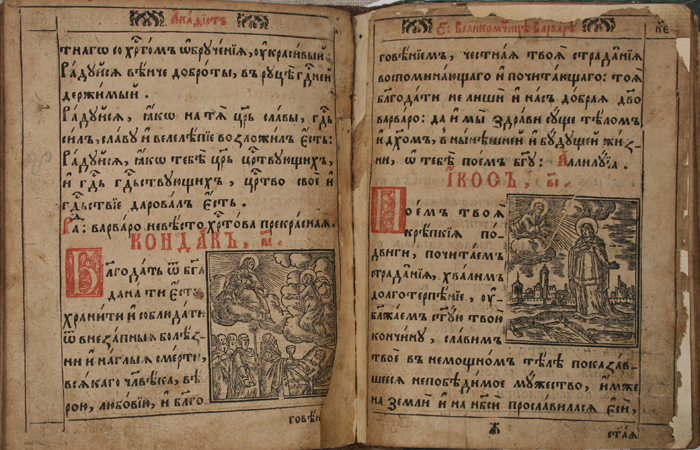 Акаѳістъ
тнагѡ со хрⷭ҇то́мъ ѡ҆брꙋче́нїѧ, ѹ҆краси́вый.
Ра́дꙋйсѧ вѣ́нче добро́ты, въ рꙋцѣ̀ гдⷭ҇ней
держи́мый.
Ра́дꙋйсѧ, ꙗ҆́кѡ на тѧ̀ цр҃ь сла́вы, гдⷭ҇ь
си́лъ, сла́вꙋ и҆ велелѣ́пїе возложи́лъ є҆́сть:
Ра́дꙋйсѧ, ꙗ҆́кѡ тебѣ̀ цр҃ь црⷭ҇твꙋющихъ,
и҆ гдⷭ҇ь гдⷭ҇ьствꙋющихъ, црⷭ҇тво своѐ и҆
гдⷭ҇ьствїе дарова́лъ є҆́сть.
Ра́: варва́ро невѣ́сто хрⷭ҇то́ва прекра́снаѧ.
КОНДА́КЪ, и҃.
Бл҃года́ть ѿ бг҃а
дана̀ ти є҆́сть
храни́ти и҆ соблюда́ти
ѿ внеза́пныѧ болѣ́з
ни и҆ на́глыѧ сме́рти,
всѧ́каго чл҃вѣ́ка, вѣ́
рою, любо́вїю, и҆ бл҃го
говѣ́н
С: Великомⷱ҇цѣ Варва́рѣ
говѣ́нїемъ, че́стнаѧ твоѧ̑ страда̑нїѧ
воспомина́ющаго и҆ почита́ющаго: тоѧ̀
бл҃года́ти не лишѝ и҆ на́съ до́браѧ дв҃о
варва́ро: да и҆ мы̀ здра́ви сꙋ́ще тѣ́ломъ
и҆ дх҃омъ, в ны́нѣшней и҆ бꙋ́дꙋщей жи́з
ни, ѡ҆ тебѣ̀ пое́мъ бг҃ꙋ: А҆ллилꙋ́їа.
І҆́КОСЪ, и҃.
Пое́мъ твоѧ̑
крѣ́пкїѧ по́
двиги, почита́емъ
страда̑нїѧ, хва́лимъ
долготерпѣ́нїе, ѹ҆
блажа́емъ ст҃ꙋю твою̀
кончи́нꙋ, сла́вимъ
твоѐ въ немощно́мъ тѣ́лѣ показа́в
шеесѧ непобѣди́мое мꙋ́жество, и҆́мже
на землѝ и҆ на нб҃сѝ просла́виласѧ є҆сѝ,
ст҃а́ѧ